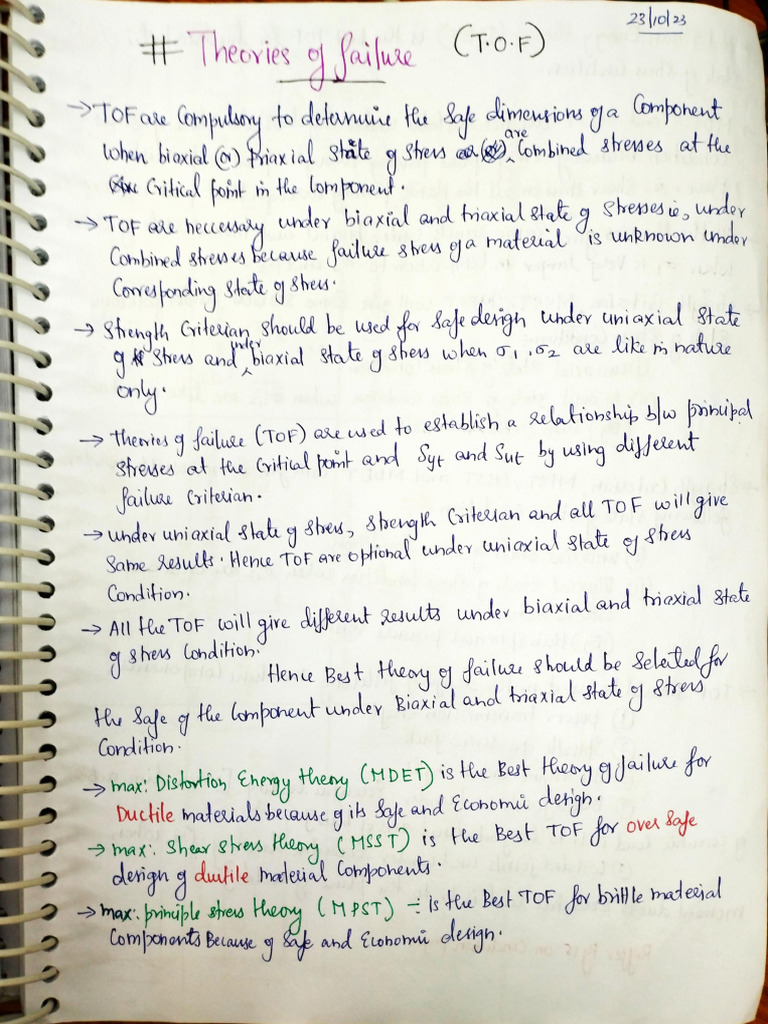 23/10/23
# Theories of failure (T.O.F)
→ TOF are Compulsory to determine the safe dimensions of a Component
are
when biaxial (or) triaxial state of stress Combined stresses at the
Critical point in the Component.
→ TOF are neccessary under biaxial and triaxial state of stresses ie, under
Combined stresses because failure stress of a material is unknown under
Corresponding state of stress.
→ Strength Criterian should be used for safe design under uniaxial state
under
of stress and biaxial state of stress when σ1, σ2 are like in nature
only.
→ Theories of failure (TOF) are used to establish a relationship b/w principal
stresses at the critical point and Syt and Sut by using different
failure Criterian.
→ under uniaxial state of stress, strength Criterian and all TOF will give
same results. Hence TOF are optional under uniaxial state of stress
Condition.
→ All the TOF will give different results under biaxial and triaxial state
of stress Condition.
Hence Best theory of failure should be selected for
the safe of the Component under Biaxial and triaxial state of stress
Condition.
→ max: Distortion Energy theory (MDET) is the Best theory of failure for
Ductile materials because of its safe and Economic design.
→ max: shear stress theory (MSST) is the Best TOF for over safe
design of ductile material Components.
→ max: principle stress theory (MPST) :- is the Best TOF for brittle material
Components Because of safe and Economic design.